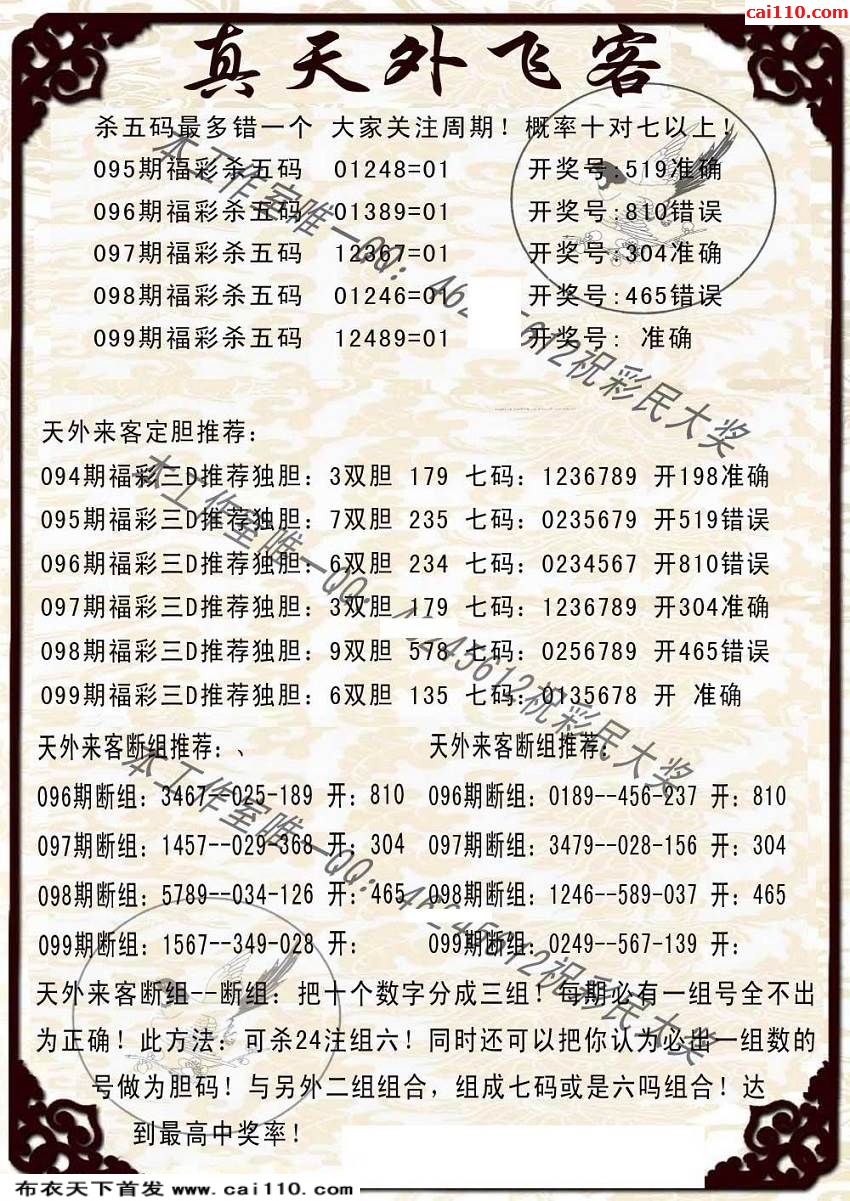 cai110.com
真天外飞客
杀五码最多错一个 大家关注周期！概率十对七以上！
095期福彩杀五码 01248=01 开奖号:519准确
096期福彩杀五码 01389=01 开奖号:810错误
097期福彩杀五码 12367=01 开奖号:304准确
098期福彩杀五码 01246=01 开奖号:465错误
099期福彩杀五码 12489=01 开奖号: 准确
天外来客定胆推荐：
094期福彩三D推荐独胆：3双胆 179 七码：1236789 开198准确
095期福彩三D推荐独胆：7双胆 235 七码：0235679 开519错误
096期福彩三D推荐独胆：6双胆 234 七码：0234567 开810错误
097期福彩三D推荐独胆：3双胆 179 七码：1236789 开304准确
098期福彩三D推荐独胆：9双胆 578 七码：0256789 开465错误
099期福彩三D推荐独胆：6双胆 135 七码：0135678 开 准确
天外来客断组推荐：、 天外来客断组推荐：
096期断组：3467--025-189 开：810 096期断组：0189--456-237 开：810
097期断组：1457--029-368 开：304 097期断组：3479--028-156 开：304
098期断组：5789--034-126 开：465 098期断组：1246--589-037 开：465
099期断组：1567--349-028 开： 099期断组：0249--567-139 开：
天外来客断组--断组：把十个数字分成三组！每期必有一组号全不出
为正确！此方法：可杀24注组六！同时还可以把你认为必出一组数的
号做为胆码！与另外二组组合，组成七码或是六吗组合！达
到最高中奖率！
本工作室唯一QQ：
祝彩民大奖
本工作室唯一QQ：
祝彩民大奖
本工作室唯一QQ：
祝彩民大奖
布衣天下首发 www.cai110.com